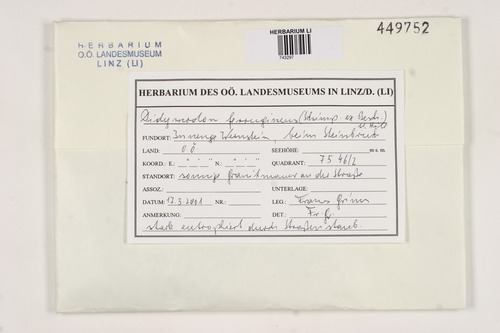 449752
HERBARIUM LI
743297
HERBARIUM
OÖ. LANDESMUSEUM
LINZ (LI)
HERBARIUM DES OÖ. LANDESMUSEUMS IN LINZ/D. (LI)
Didymodon ferrugineus (Schimp. ex Besch.) M. Hill
FUNDORT: beim Steinbruch
LAND: OÖ SEEHÖHE: m s. m.
KOORD.: E.: ° ' " N.: ° ' " QUADRANT: 7546/2
STANDORT: sonnige Granitmauer an der Straße
ASSOZ.: UNTERLAGE:
DATUM: 17.3.2001 NR.: LEG.: Franz Grims
ANMERKUNG: DET.: Fr. G.
stark eutrophiert durch Straßenstaub